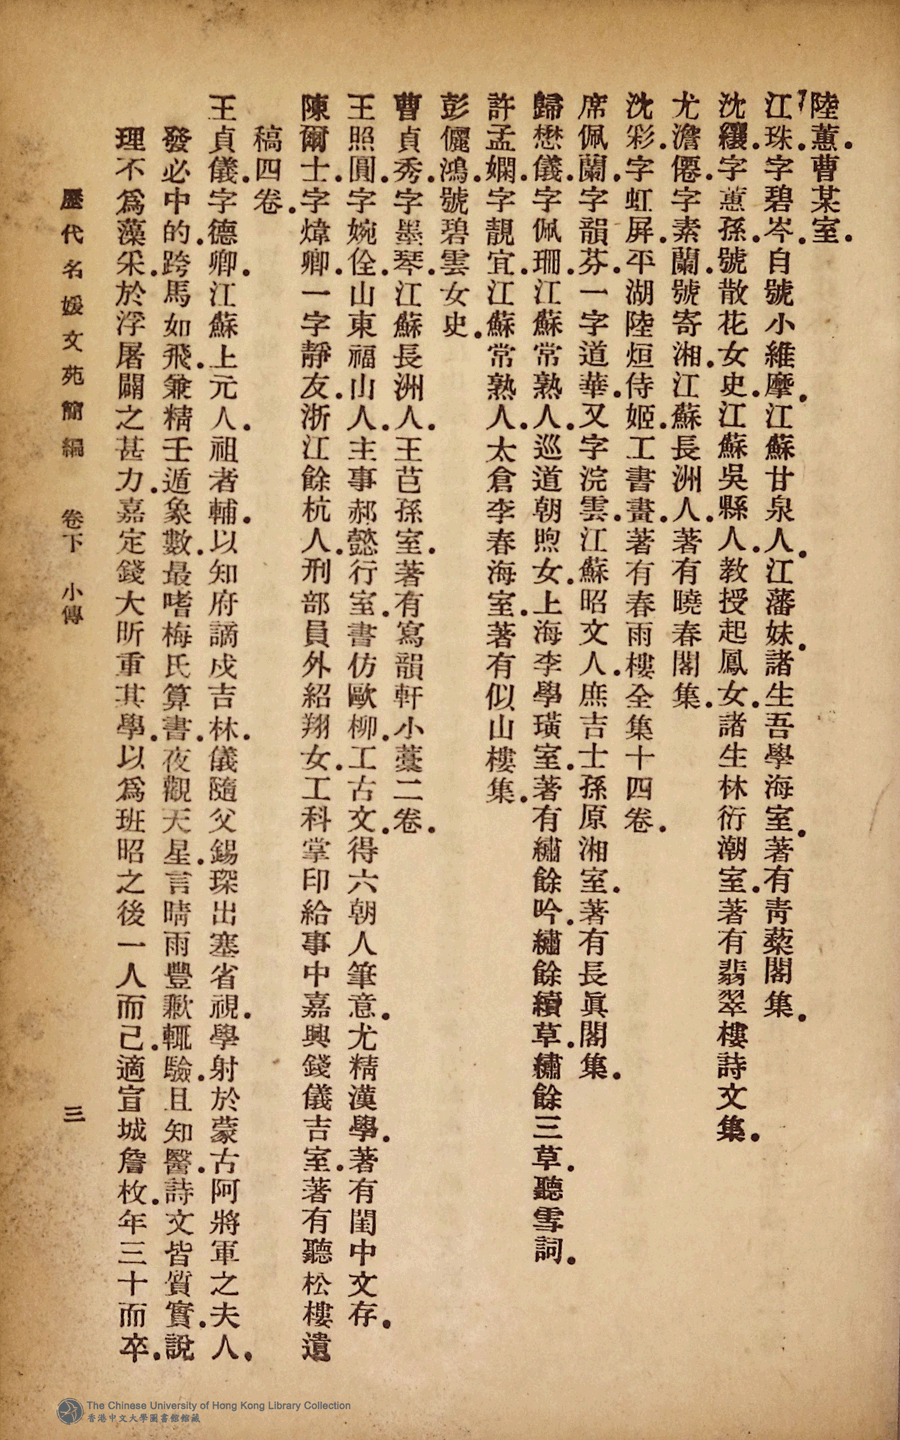 陸蕙.曹某室.
江珠.字碧岑.自號小維摩.江蘇甘泉人.江藩妹.諸生吾學海室.著有青藜閣集.
沈纕.字蕙孫.號散花女史.江蘇吳縣人.教授起鳳女.諸生林衍潮室.著有翡翠樓詩文集.
尤澹僊.字素蘭.號寄湘.江蘇長洲人.著有曉春閣集.
沈彩.字虹屛.平湖陸烜侍姬.工書畫.著有春雨樓全集十四卷.
席佩蘭.字韻芬.一字道華.又字浣雲.江蘇昭文人.庶吉士孫原湘室.著有長眞閣集.
歸懋儀.字佩珊.江蘇常熟人.巡道朝煦女.上海李學璜室.著有繡餘吟.繡餘續草.繡餘三草.聽雪詞.
許孟嫻.字靚宜.江蘇常熟人.太倉李春海室.著有似山樓集.
彭儷鴻.號碧雲女史.
曹貞秀.字墨琴.江蘇長洲人.王芑孫室.著有寫韻軒小藁二卷.
王照圓.字婉佺.山東福山人.主事郝懿行室.書仿歐柳.工古文.得六朝人筆意.尤精漢學.著有閨中文存.
陳爾士.字煒卿.一字靜友.浙江餘杭人.刑部員外紹翔女.工科掌印給事中嘉興錢儀吉室.著有聽松樓遺
稿四卷.
王貞儀.字德卿.江蘇上元人.祖者輔.以知府謫戍吉林.儀隨父錫琛出塞省視.學射於蒙古阿將軍之夫人.
發必中的.跨馬如飛.兼精壬遁象數.最嗜梅氏算書.夜觀天星.言晴雨豐歉輒驗.且知醫.詩文皆質實.說
理不爲藻采.於浮屠闢之甚力.嘉定錢大昕重其學.以爲班昭之後一人而已.適宣城詹枚.年三十而卒.
歷代名媛文苑簡編 卷下 小傳 三
The Chinese University of Hong Kong Library Collection
香港中文大學圖書館館藏